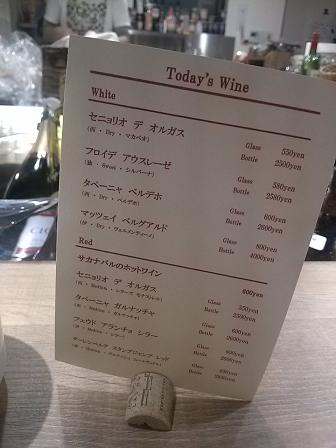 Today's Wine
White
セニョリオ デ オルガス
(西・Dry・マカベオ)
Glass 550yen
Bottle 2500yen
フロイデ アウスレーゼ
(独・Sweet・シルバーナ)
Glass 580yen
Bottle 2580yen
タベーニャ ベルデホ
(西・Dry・ベルデホ)
Glass 600yen
Bottle 2600yen
マッツェイ ベルグアルド
(伊・Dry・ヴェルメンティーノ)
Glass 800yen
Bottle 4000yen
Red
サカナバルのホットワイン 600yen
セニョリオ デ オルガス
Glass 550yen
Bottle 2500yen
タベーニャ ガルナッチャ
Glass 600yen
Bottle 2600yen
フェウド アランチョ シラー
Glass
Bottle
Glass
Bottle